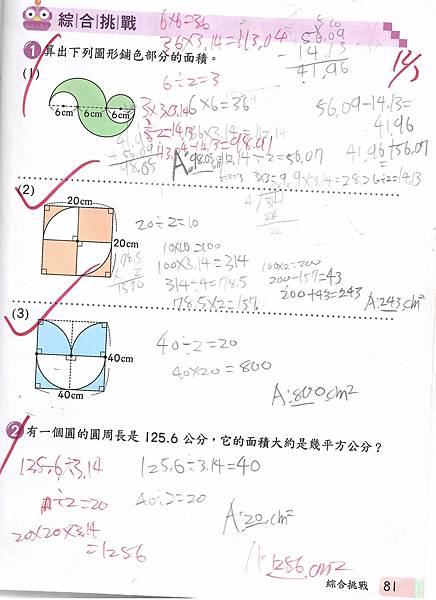 綜合挑戰
6×6=36
36×3.14=113.04
56.09
- 14.13
41.96
1 算出下列圖形鋪色部分的面積。
(1)
6÷2=3
6cm 6cm 6cm
3×3×3.14
6×6=36
56.09-14.13=
41.96
÷2=14.13
36×3.14=
113.04-14.13=98.91
41.96+56.07
98.03
÷2=56.07
6÷2=3 3×3=9, 9×3.14=28.26÷2=14.13
(2)
20cm
20cm
20÷2=10
10×10=100
100×3.14=314
314÷4=78.5
78.5×2=157
78.5
× 2
1570
100×2=200
200-157=43
200+43=243
A:243cm²
(3)
40cm
40cm
40÷2=20
40×20=800
A:800cm²
2 有一個圓的圓周長是 125.6 公分,它的面積大約是幾平方公分?
125.6÷3.14
125.6÷3.14=40
÷2=20
40÷2=20
20×20×3.14
=1256
A:20cm²
A:1256cm²
綜合挑戰 81